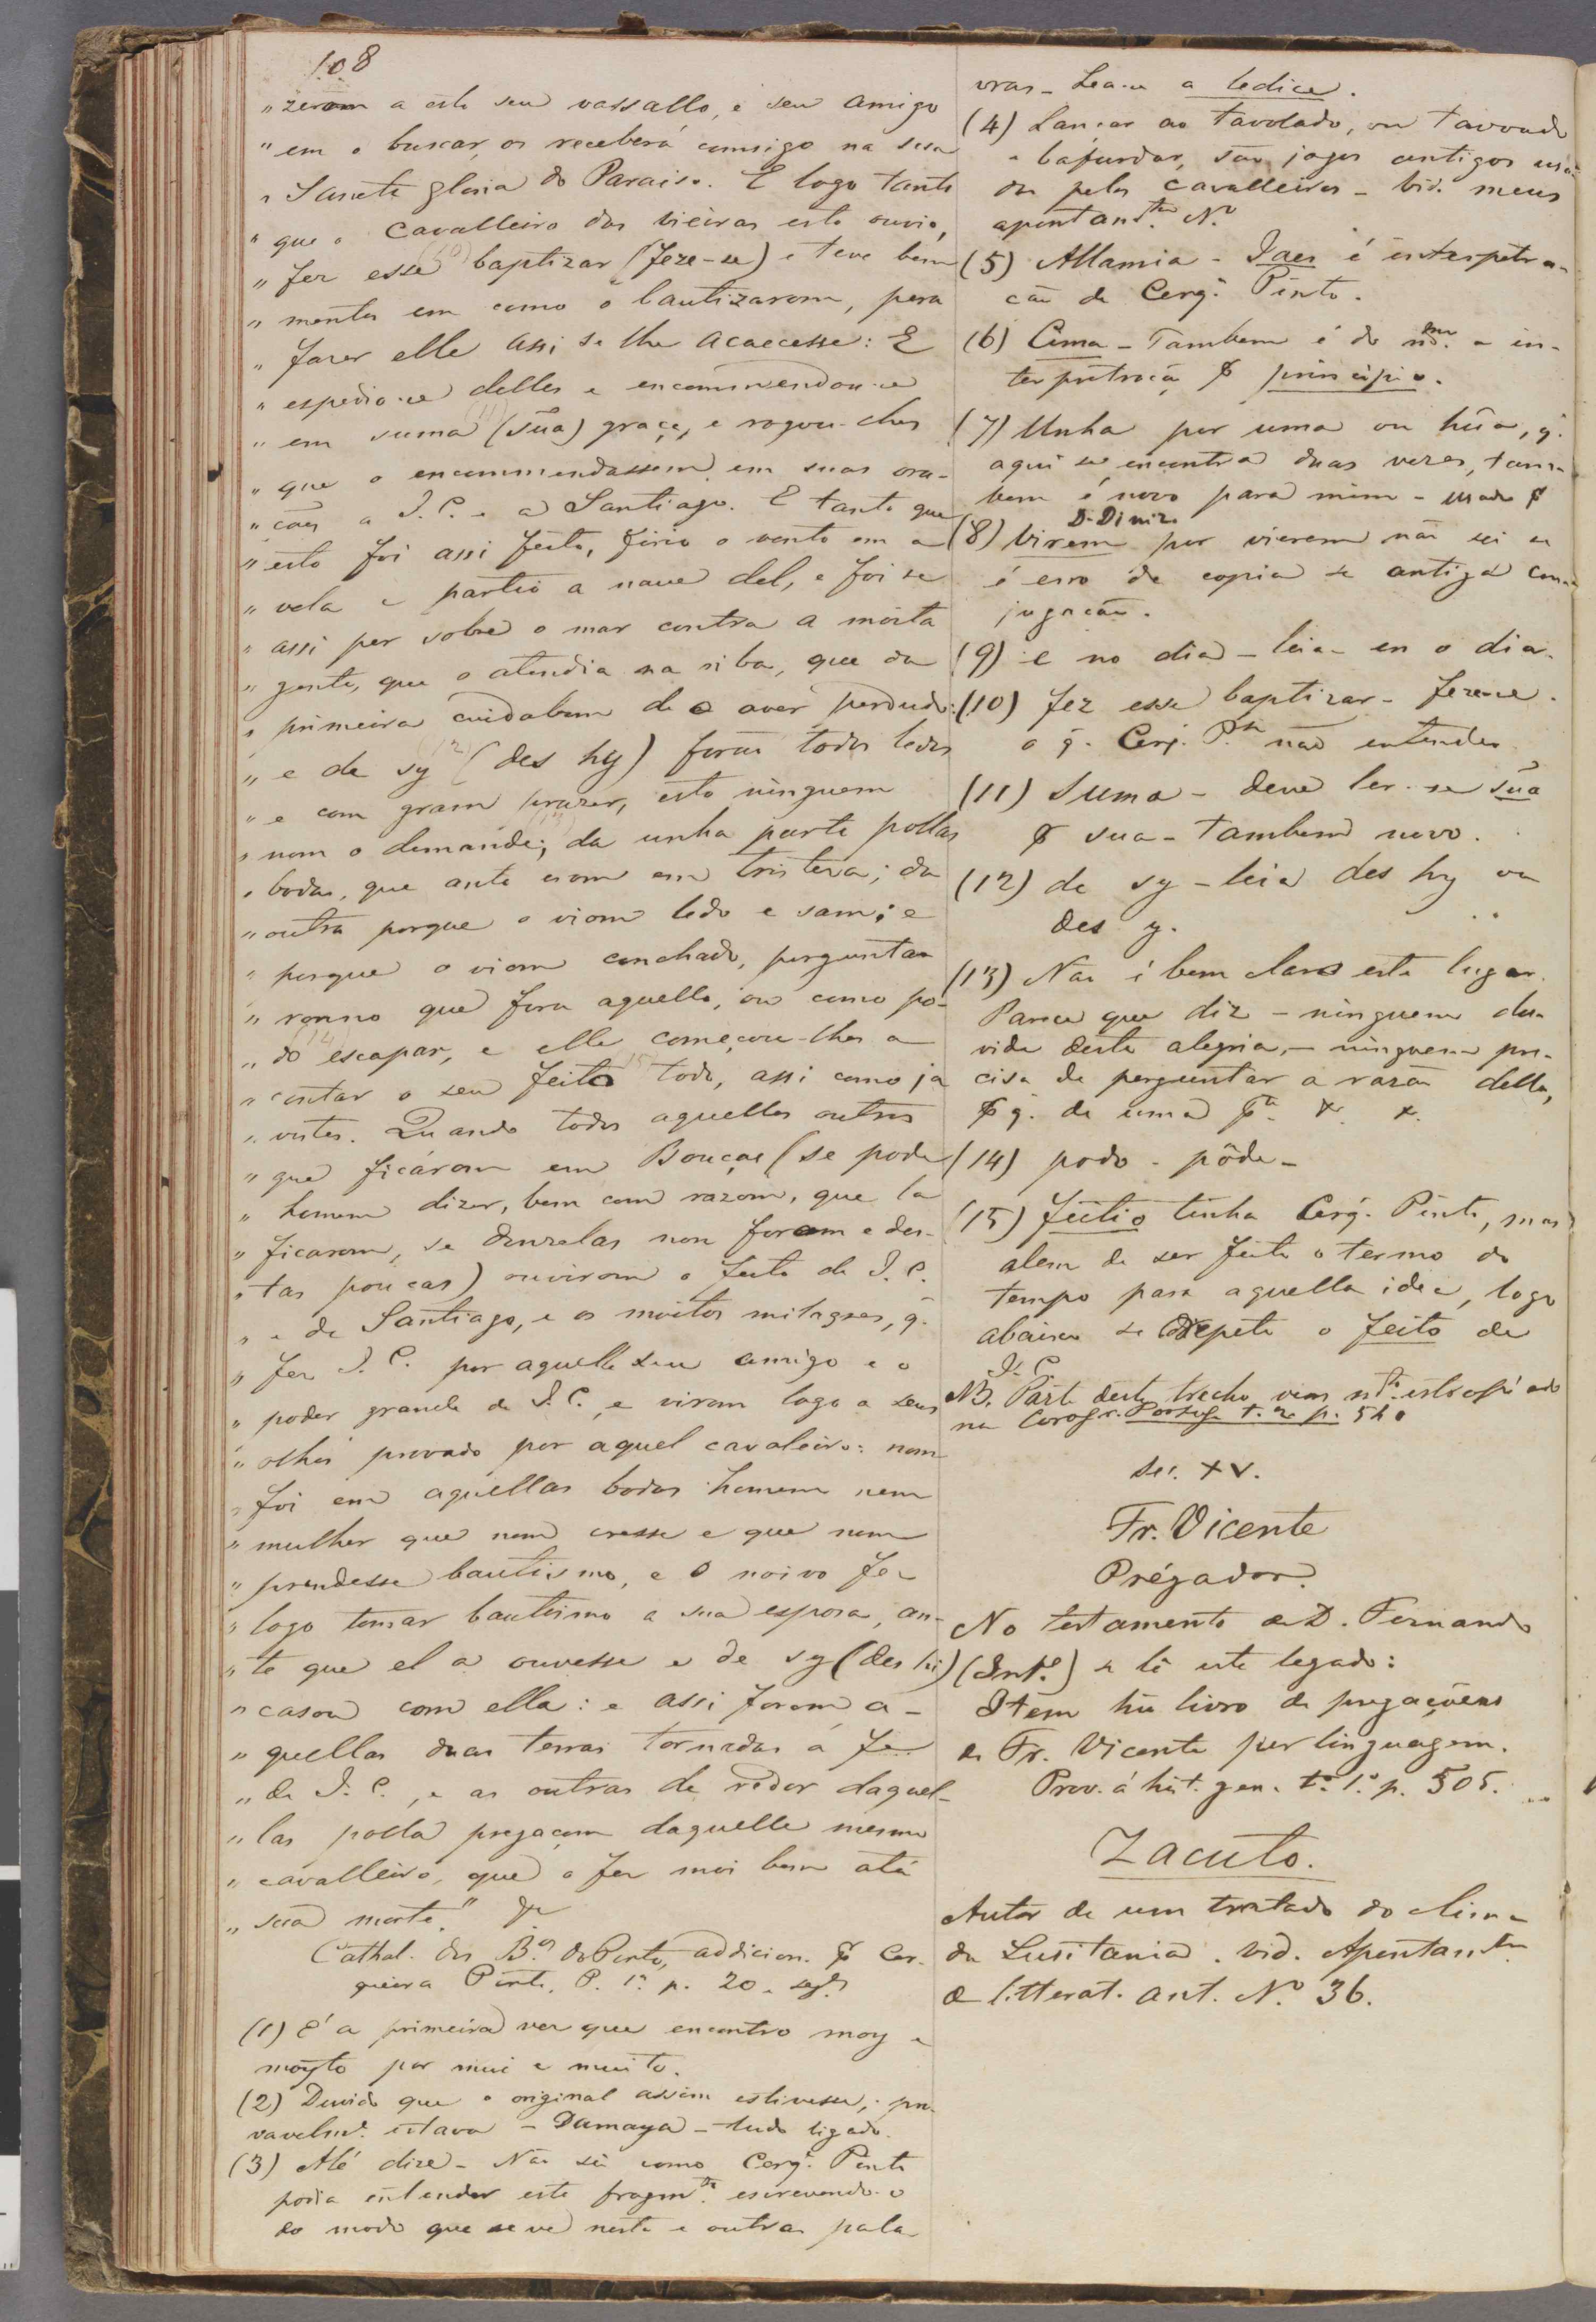 108
" zerom a este seu vassallo, e seu amigo
" em o buscar, os receberá comsigo na sua
" Sancte gloria do Paraiso. E logo tanto
" que o Cavalleiro das Vieiras esto ouvio,
" fez esse (10) baptizar (feze-se) e teve bem
" mentes em como o bautizarom, pera
" fazer elle assi se lhe acaecesse: E
" espedio-se delles e encommendou-se
" em suma (11) (sũa) graça, e rogou-lhes
" que o encommendassem em suas ora-
" ções a J. C. e a Santiago. E tanto que
" esto foi assi feito, firio o vento em a
" vela e partio a nave del, e foi se
" assi per sobre o mar contra a moita
" gente, que o atendia na riba, que da
" primeira cuidabam de o aver perdudo:
" e de sy (12) (des hy) forão todos ledos
" e com gram prazer, esto ninguem
" nom o demande; (13) da unha parte pollas
" bodas, que ante erom em tristeza; da
" outra porque o viom ledo e sam; e
" porque o viom conchado, perguntar
" romno que fora aquello, ou como po-
" do (14) escapar, e elle começou-lhes a
" contar o seu feito (15) todo, assi como ja
" vistes. Quando todos aquelles outros
" que ficárom em Bouças (se pode
" homem dizer, bem com razom, que la
" ficarom, se donzelas non forom e des-
" tas poucas) ouvirom o feito de J. C.
" e de Santiago, e os moitos milagres, q.
" fez J. C. por aquelle seu amigo e o
" poder grande de J. C., e virom logo a seus
" olhos provado por aquel cavaleiro: nom
" foi em aquellas bodas homem nem
" mulher que nom cresse e que nom
" prendesse bautismo, e o noivo fez
" logo tomar bautismo a sua esposa, an-
" te que el a ouvesse e de sy (des hi)
" casou com ella: e assi forom a-
" quellas duas terras tornadas á fe
" de J. C., e as outras de redor daquel-
" las polla pregaçom daquelle mesmo
" cavalleiro, que o fez moi bem atá
" sua morte."
Cathal. dos B.os do Porto, addicion. p Cer-
queira Pinto, P. 1ª p. 20 e seg.s
(1) É a primeira vez que encontro moy e
moyto por mui e muito.
(2) Duvido que o original assim estivesse; pro-
vavelm.e estava - Damaya - tudo ligado.
(3) Alé dize - Não sei como Cerq.a Pinto
podia entender este fragm.to escrevendo-o
do modo que se ve neste e outras pala
vras - Lea-se a ledice.
(4) Lançar ao tavolado, ou tavoado
e bafordar, são jogos antigos usa-
dos pelos cavalleiros - Vid. meus
apontam.tos N.o
(5) Allamia - Iaes é interpetra-
cão de Cerq.a Pinto.
(6) Cima - Tambem é do mesmo a in-
terpretração p principio.
(7) Unha por uma ou hũa, q.
aqui se encontra duas vezes, tam-
bem é novo para mim - usado p
D. Diniz
(8) Virem por vierem não sei se
é erro de copia se antiga con-
jugacão.
(9) e no dia - leia - en o dia.
(10) fez esse baptizar - feze-se.
o q. Cerq. P.to não entendeu
(11) Suma - deve ler-se sũa
p sua - tambem novo.
(12) de sy - leia des hy ou
des y.
(13) Não é bem claro este lugar.
Parece que diz - ninguem du-
vide desta alegria, - ninguem pre-
cisa de perguntar a razão della,
p q. de uma p.te x x.
(14) podo - pôde -
(15) feitio tinha Cerq. Pinto, mas
alem de ser feito o termo do
tempo para aquella idea, logo
abaixo se repete o feito de
J. C.
NB. Parte deste trecho vem m.to estropiado
na Corogr. Portug. t. 2 p. 520
Sec. XV.
Fr. Vicente
Prégador.
No testamento de D. Fernando
(Inf.e) se lê este legado:
Item hũ livro de pregaçõens
de Fr. Vicente per linguagem.
Prov. á hist. gen. t.o 1.o p. 505.
Zacuto.
Autor de um tratado do clima
da Lusitania. Vid. Apontam.tos
de litterat. ant. N.o 36.